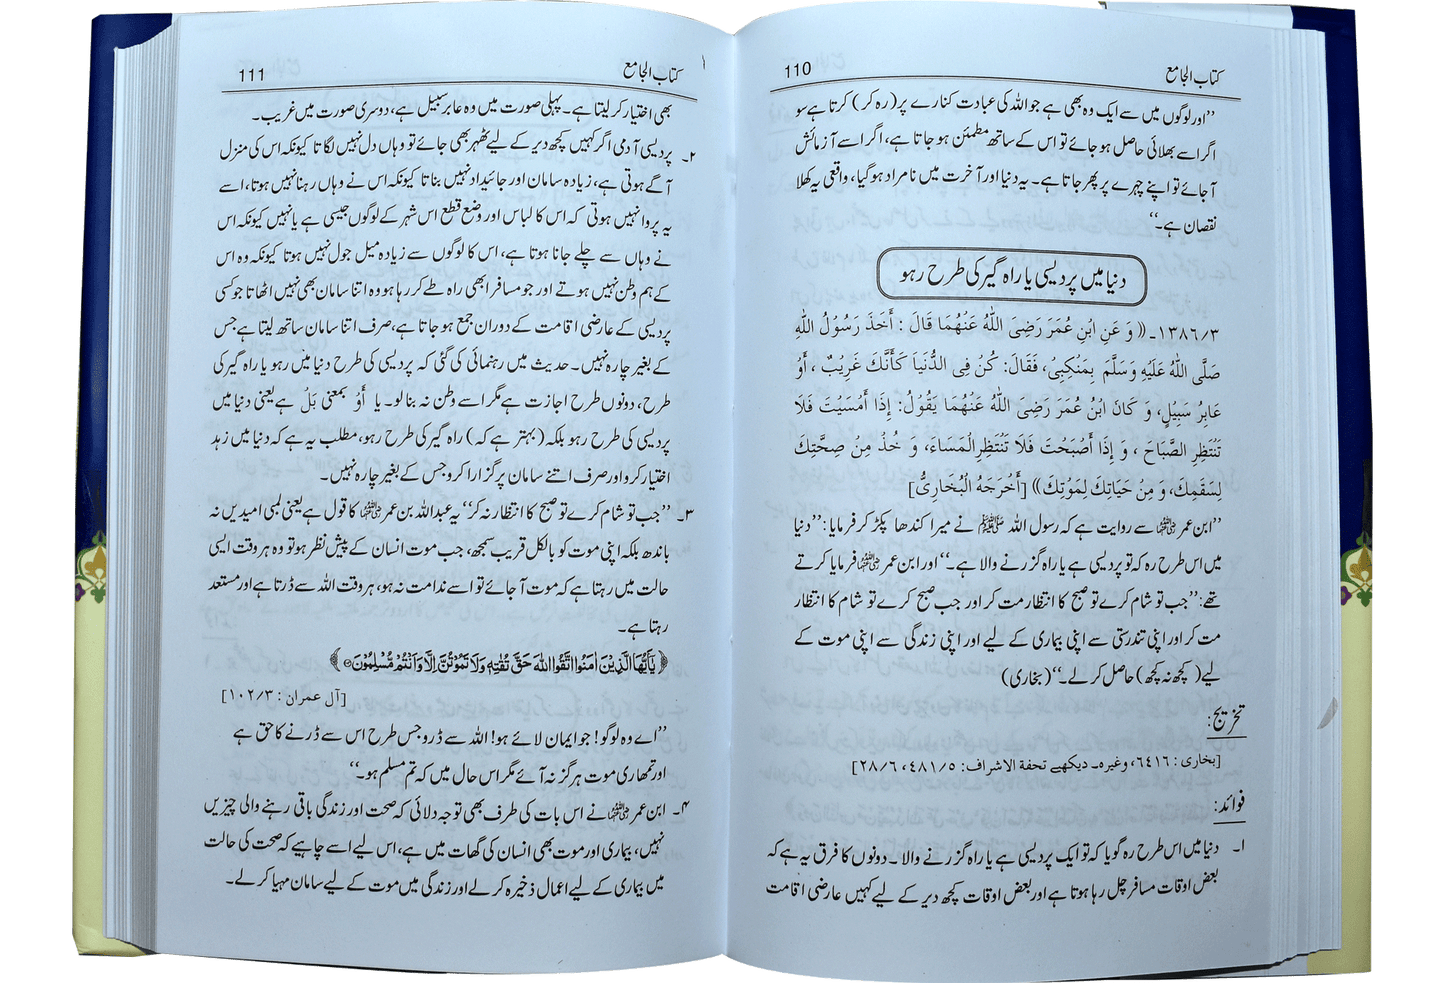 110
کتاب الجامع
’’اور لوگوں میں سے ایک وہ بھی ہے جو اللہ کی عبادت کنارے پر (رہ کر) کرتا ہے سو
اگر اسے بھلائی حاصل ہو جائے تو اس کے ساتھ مطمئن ہو جاتا ہے، اگر اسے آزمائش
آ جائے تو اپنے چہرے پر پھر جاتا ہے۔ یہ دنیا اور آخرت میں نامراد ہو گیا، واقعی یہ کھلا
نقصان ہے۔‘‘
دنیا میں پردیسی یا راہ گیر کی طرح رہو
۱۳۸۶/۳۔ (( وَ عَنِ ابْنِ عُمَرَ رَضِىَ اللّٰهُ عَنْهُمَا قَالَ : أَخَذَ رَسُوْلُ اللّٰهِ
صَلَّى اللّٰهُ عَلَيْهِ وَسَلَّمَ بِمَنْكِبِىْ، فَقَالَ: كُنْ فِى الدُّنْيَا كَأَنَّكَ غَرِيْبٌ ، أَوْ
عَابِرُ سَبِيْلٍ، وَ كَانَ ابْنُ عُمَرَ رَضِىَ اللّٰهُ عَنْهُمَا يَقُوْلُ: إِذَا أَمْسَيْتَ فَلَا
تَنْتَظِرِ الصَّبَاحَ ، وَ إِذَا أَصْبَحْتَ فَلَا تَنْتَظِرِ الْمَسَاءَ، وَ خُذْ مِنْ صِحَّتِكَ
لِسَقَمِكَ، وَ مِنْ حَيَاتِكَ لِمَوْتِكَ )) [أَخْرَجَهُ الْبُخَارِىُّ]
’’ابن عمر رضی اللہ عنہما سے روایت ہے کہ رسول اللہ ﷺ نے میرا کندھا پکڑ کر فرمایا: ’’دنیا
میں اس طرح رہ کہ تو پردیسی ہے یا راہ گزرنے والا ہے۔‘‘ اور ابن عمر رضی اللہ عنہما فرمایا کرتے
تھے: ’’جب تو شام کرے تو صبح کا انتظار مت کر اور جب صبح کرے تو شام کا انتظار
مت کر اور اپنی تندرستی سے اپنی بیماری کے لیے اور اپنی زندگی سے اپنی موت کے
لیے (کچھ نہ کچھ) حاصل کر لے۔‘‘ (بخاری)
تخریج:
[بخاری : ۶۴۱۶، وغیرہ۔ دیکھیے تحفة الاشراف: ۴۸۱/۵، ۲۸/۶]
فوائد:
۱۔ دنیا میں اس طرح رہ گویا کہ تو ایک پردیسی ہے یا راہ گزرنے والا۔ دونوں کا فرق یہ ہے کہ
بعض اوقات مسافر چل رہا ہوتا ہے اور بعض اوقات کچھ دیر کے لیے کہیں عارضی اقامت
111
کتاب الجامع
بھی اختیار کر لیتا ہے۔ پہلی صورت میں وہ عابر سبیل ہے، دوسری صورت میں غریب۔
۲۔ پردیسی آدمی اگر کہیں کچھ دیر کے لیے ٹھہر بھی جائے تو وہاں دل نہیں لگاتا کیونکہ اس کی منزل
آگے ہوتی ہے، زیادہ سامان اور جائیداد نہیں بناتا کیونکہ اس نے وہاں رہنا نہیں ہوتا، اسے
یہ پروا نہیں ہوتی کہ اس کا لباس اور وضع قطع اس شہر کے لوگوں جیسی ہے یا نہیں کیونکہ اس
نے وہاں سے چلے جانا ہوتا ہے، اس کا لوگوں سے زیادہ میل جول نہیں ہوتا کیونکہ وہ اس
کے ہم وطن نہیں ہوتے اور جو مسافر ابھی راہ طے کر رہا ہو وہ اتنا سامان بھی نہیں اٹھاتا جو کسی
پردیسی کے عارضی اقامت کے دوران جمع ہو جاتا ہے، صرف اتنا سامان ساتھ لیتا ہے جس
کے بغیر چارہ نہیں۔ حدیث میں رہنمائی کی گئی کہ پردیسی کی طرح دنیا میں رہو یا راہ گیر کی
طرح، دونوں طرح اجازت ہے مگر اسے وطن نہ بنا لو۔ یا أَوْ بمعنی بَلْ ہے یعنی دنیا میں
پردیسی کی طرح رہو بلکہ (بہتر ہے کہ) راہ گیر کی طرح رہو، مطلب یہ ہے کہ دنیا میں زہد
اختیار کرو اور صرف اتنے سامان پر گزارا کرو جس کے بغیر چارہ نہیں۔
۳۔ ’’جب تو شام کرے تو صبح کا انتظار نہ کر‘‘ یہ عبداللہ بن عمر رضی اللہ عنہما کا قول ہے یعنی لمبی امیدیں نہ
باندھ بلکہ اپنی موت کو بالکل قریب سمجھ، جب موت انسان کے پیش نظر ہو تو وہ ہر وقت ایسی
حالت میں رہتا ہے کہ موت آ جائے تو اسے ندامت نہ ہو، ہر وقت اللہ سے ڈرتا ہے اور مستعد
رہتا ہے۔
﴿ يٰٓاَيُّهَا الَّذِيْنَ اٰمَنُوا اتَّقُوا اللّٰهَ حَقَّ تُقٰتِهٖ وَ لَا تَمُوْتُنَّ اِلَّا وَ اَنْتُمْ مُّسْلِمُوْنَ ﴾
[آل عمران : ۱۰۲/۳]
’’اے وہ لوگو! جو ایمان لائے ہو! اللہ سے ڈرو جس طرح اس سے ڈرنے کا حق ہے
اور تمھاری موت ہرگز نہ آئے مگر اس حال میں کہ تم مسلم ہو۔‘‘
۴۔ ابن عمر رضی اللہ عنہما نے اس بات کی طرف بھی توجہ دلائی کہ صحت اور زندگی باقی رہنے والی چیزیں
نہیں، بیماری اور موت بھی انسان کی گھات میں ہے، اس لیے اسے چاہیے کہ صحت کی حالت
میں بیماری کے لیے اعمال ذخیرہ کر لے اور زندگی میں موت کے لیے سامان مہیا کر لے۔